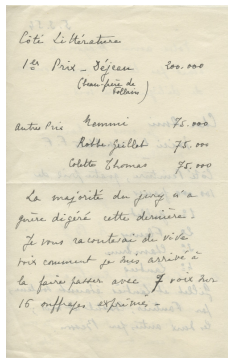 Côté Littérature
1er Prix - Déjean 200.000
(beau-père de
Follain)
Autres Prix Memmi 75.000
Robbe Grillet 75.000
Colette Thomas 75.000
La majorité du jury n'a
guère digéré cette dernière.
Je vous raconterai de vive
voix comment je suis arrivé à
la faire passer avec 7 voix sur
16 suffrages exprimés -